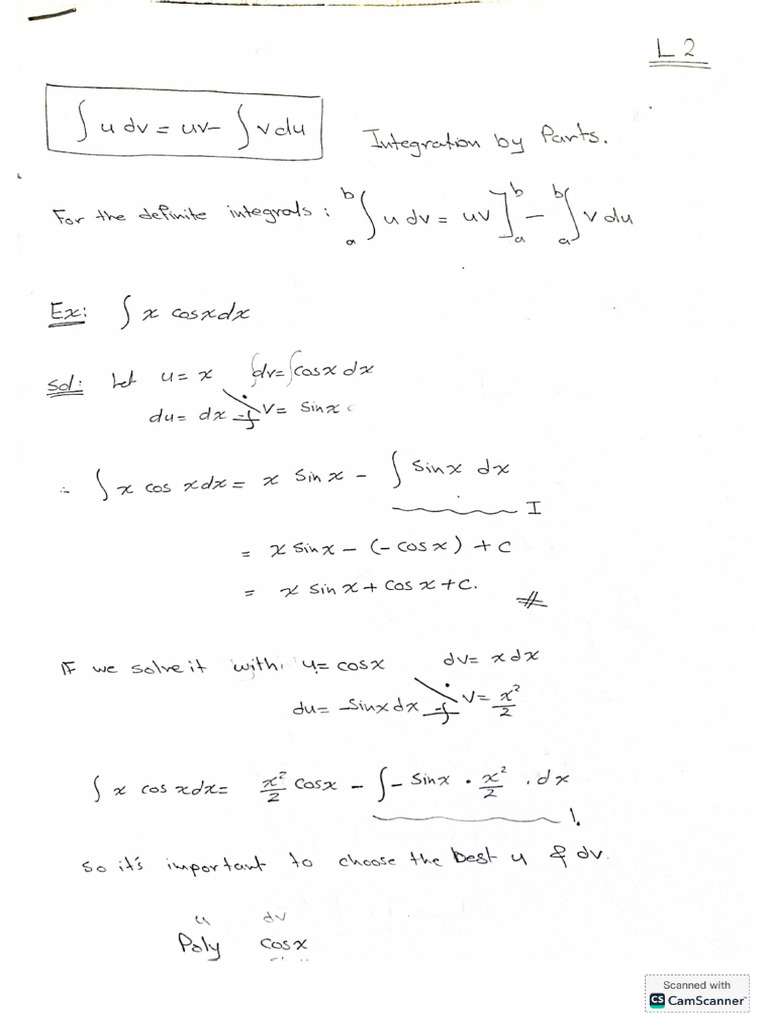 L 2
∫ u dv = uv - ∫ v du Integration by Parts.
For the definite integrals : a∫b u dv = uv ]a b - a∫b v du
Ex: ∫ x cosx dx
Sol: Let u = x ∫dv = ∫cosx dx
du = dx -∫ v = sinx
∴ ∫ x cos x dx = x sinx - ∫ sinx dx
I
= x sinx - (-cosx) + c
= x sinx + cosx + c. #
If we solve it with u = cosx dv = x dx
du = -sinx dx -∫ v = x²/2
∫ x cosx dx = x²/2 cosx - ∫ - sinx . x²/2 . dx
!
So it's important to choose the best u & dv.
u dv
Poly cosx
Scanned with
CS CamScanner